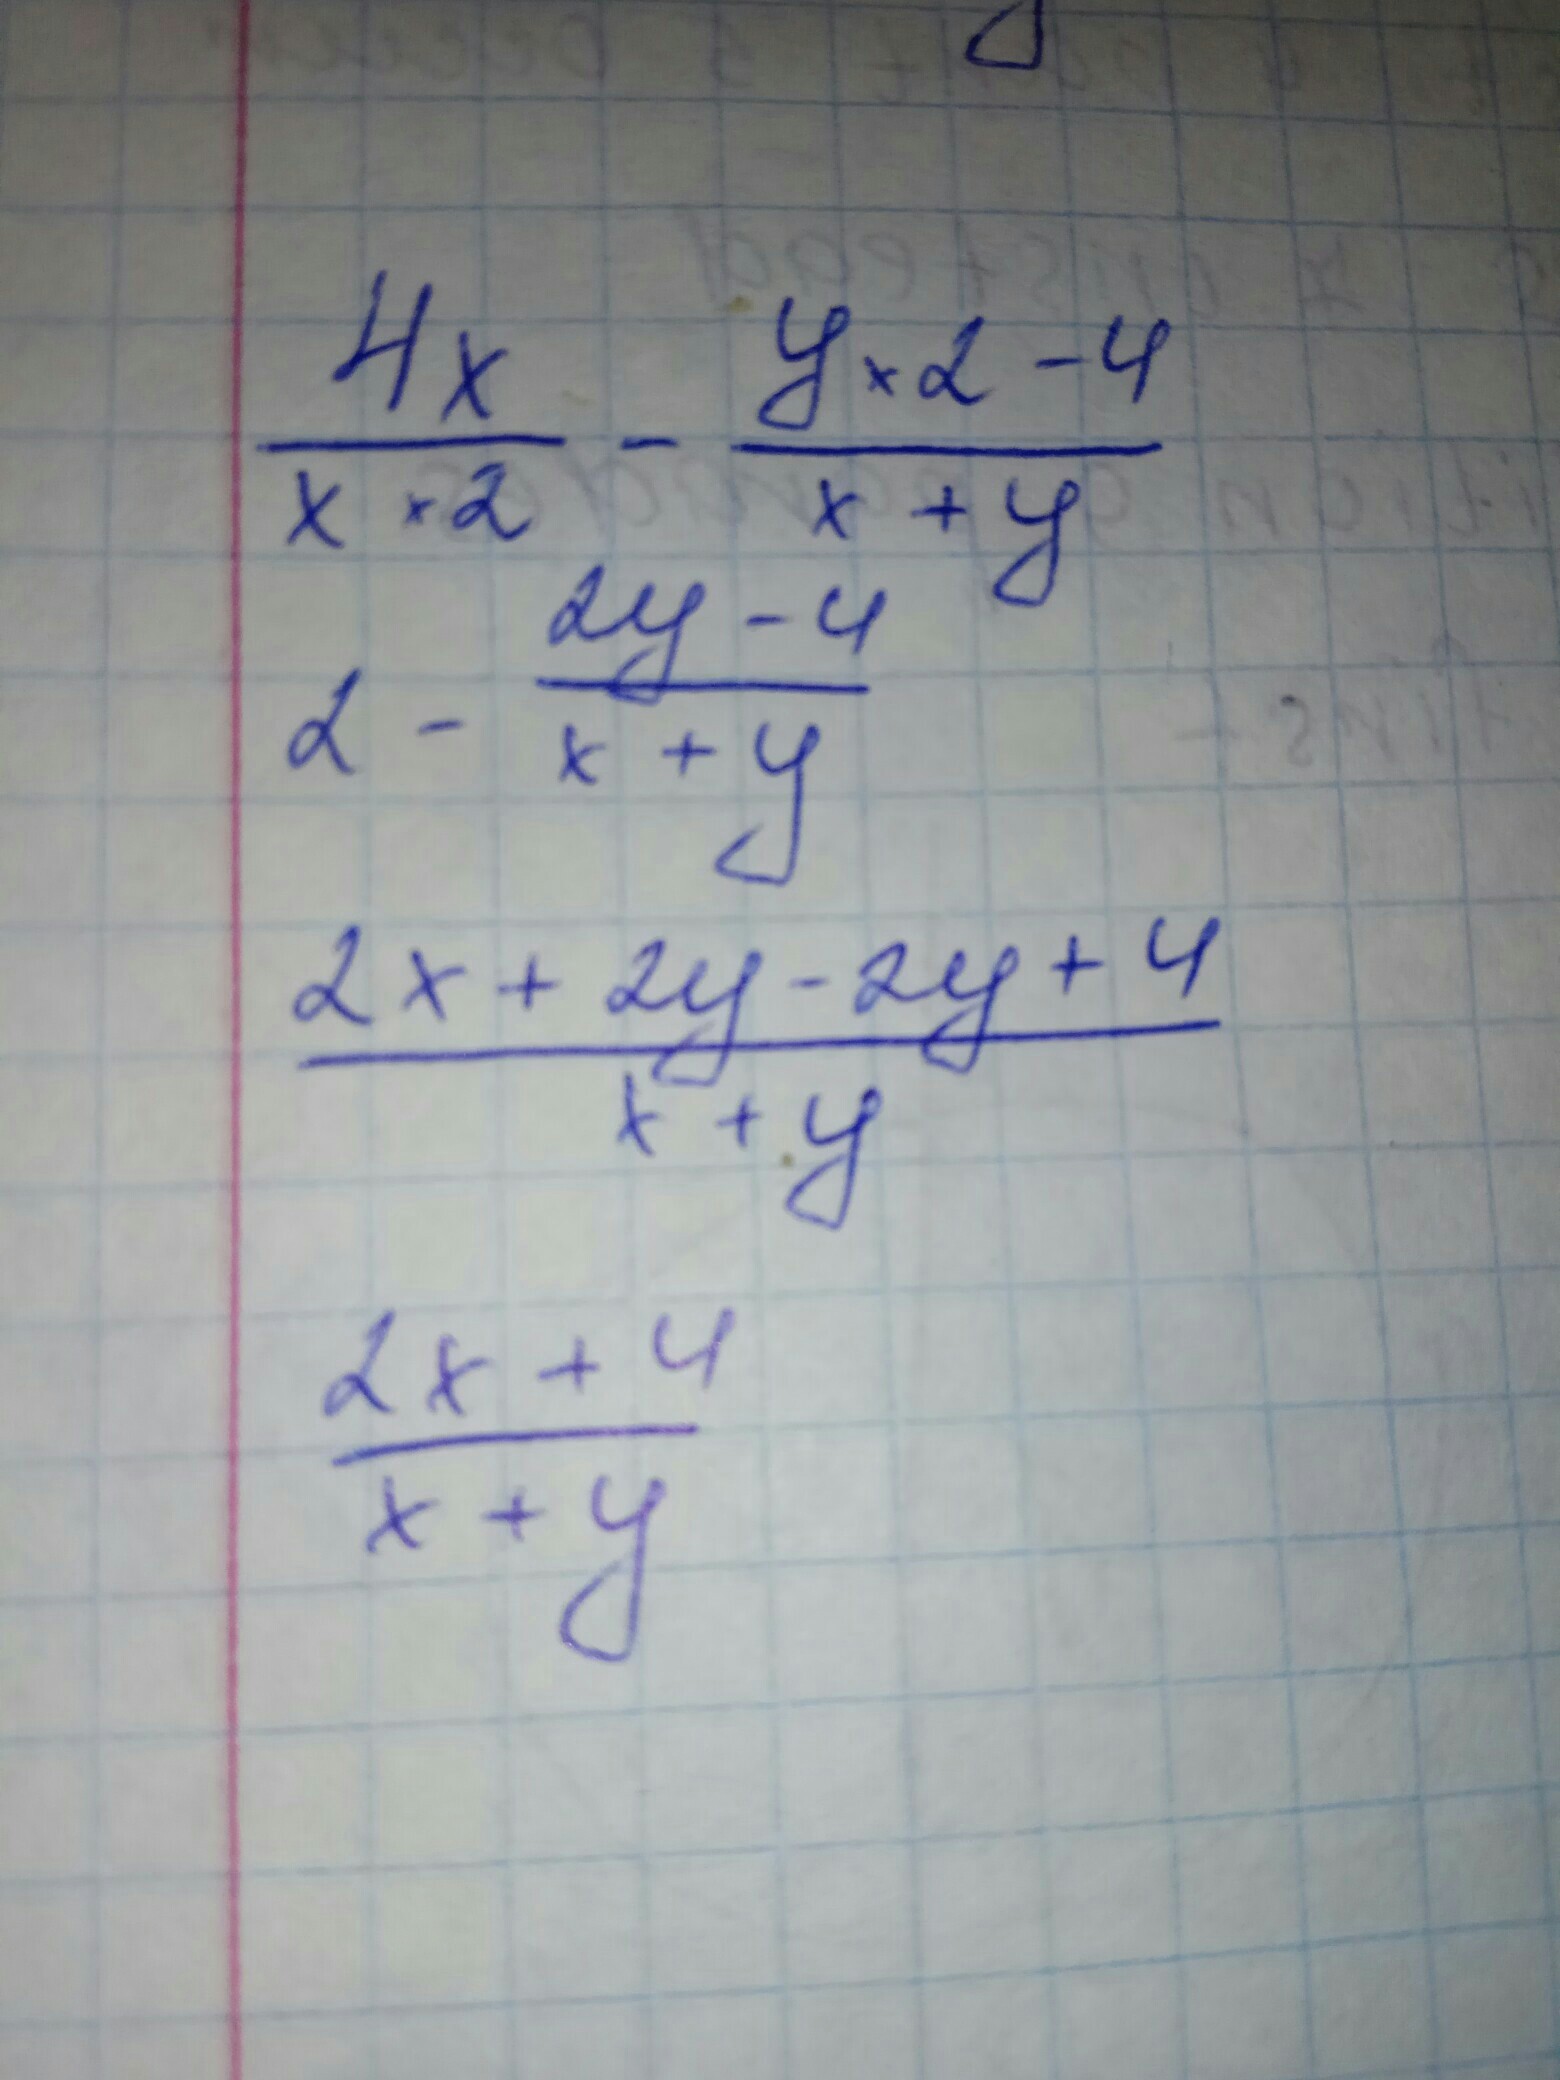 4x / x × 2 - y × 2 - 4 / x + y
2 - 2y - 4 / x + y
2x + 2y - 2y + 4 / x + y
2x + 4 / x + y